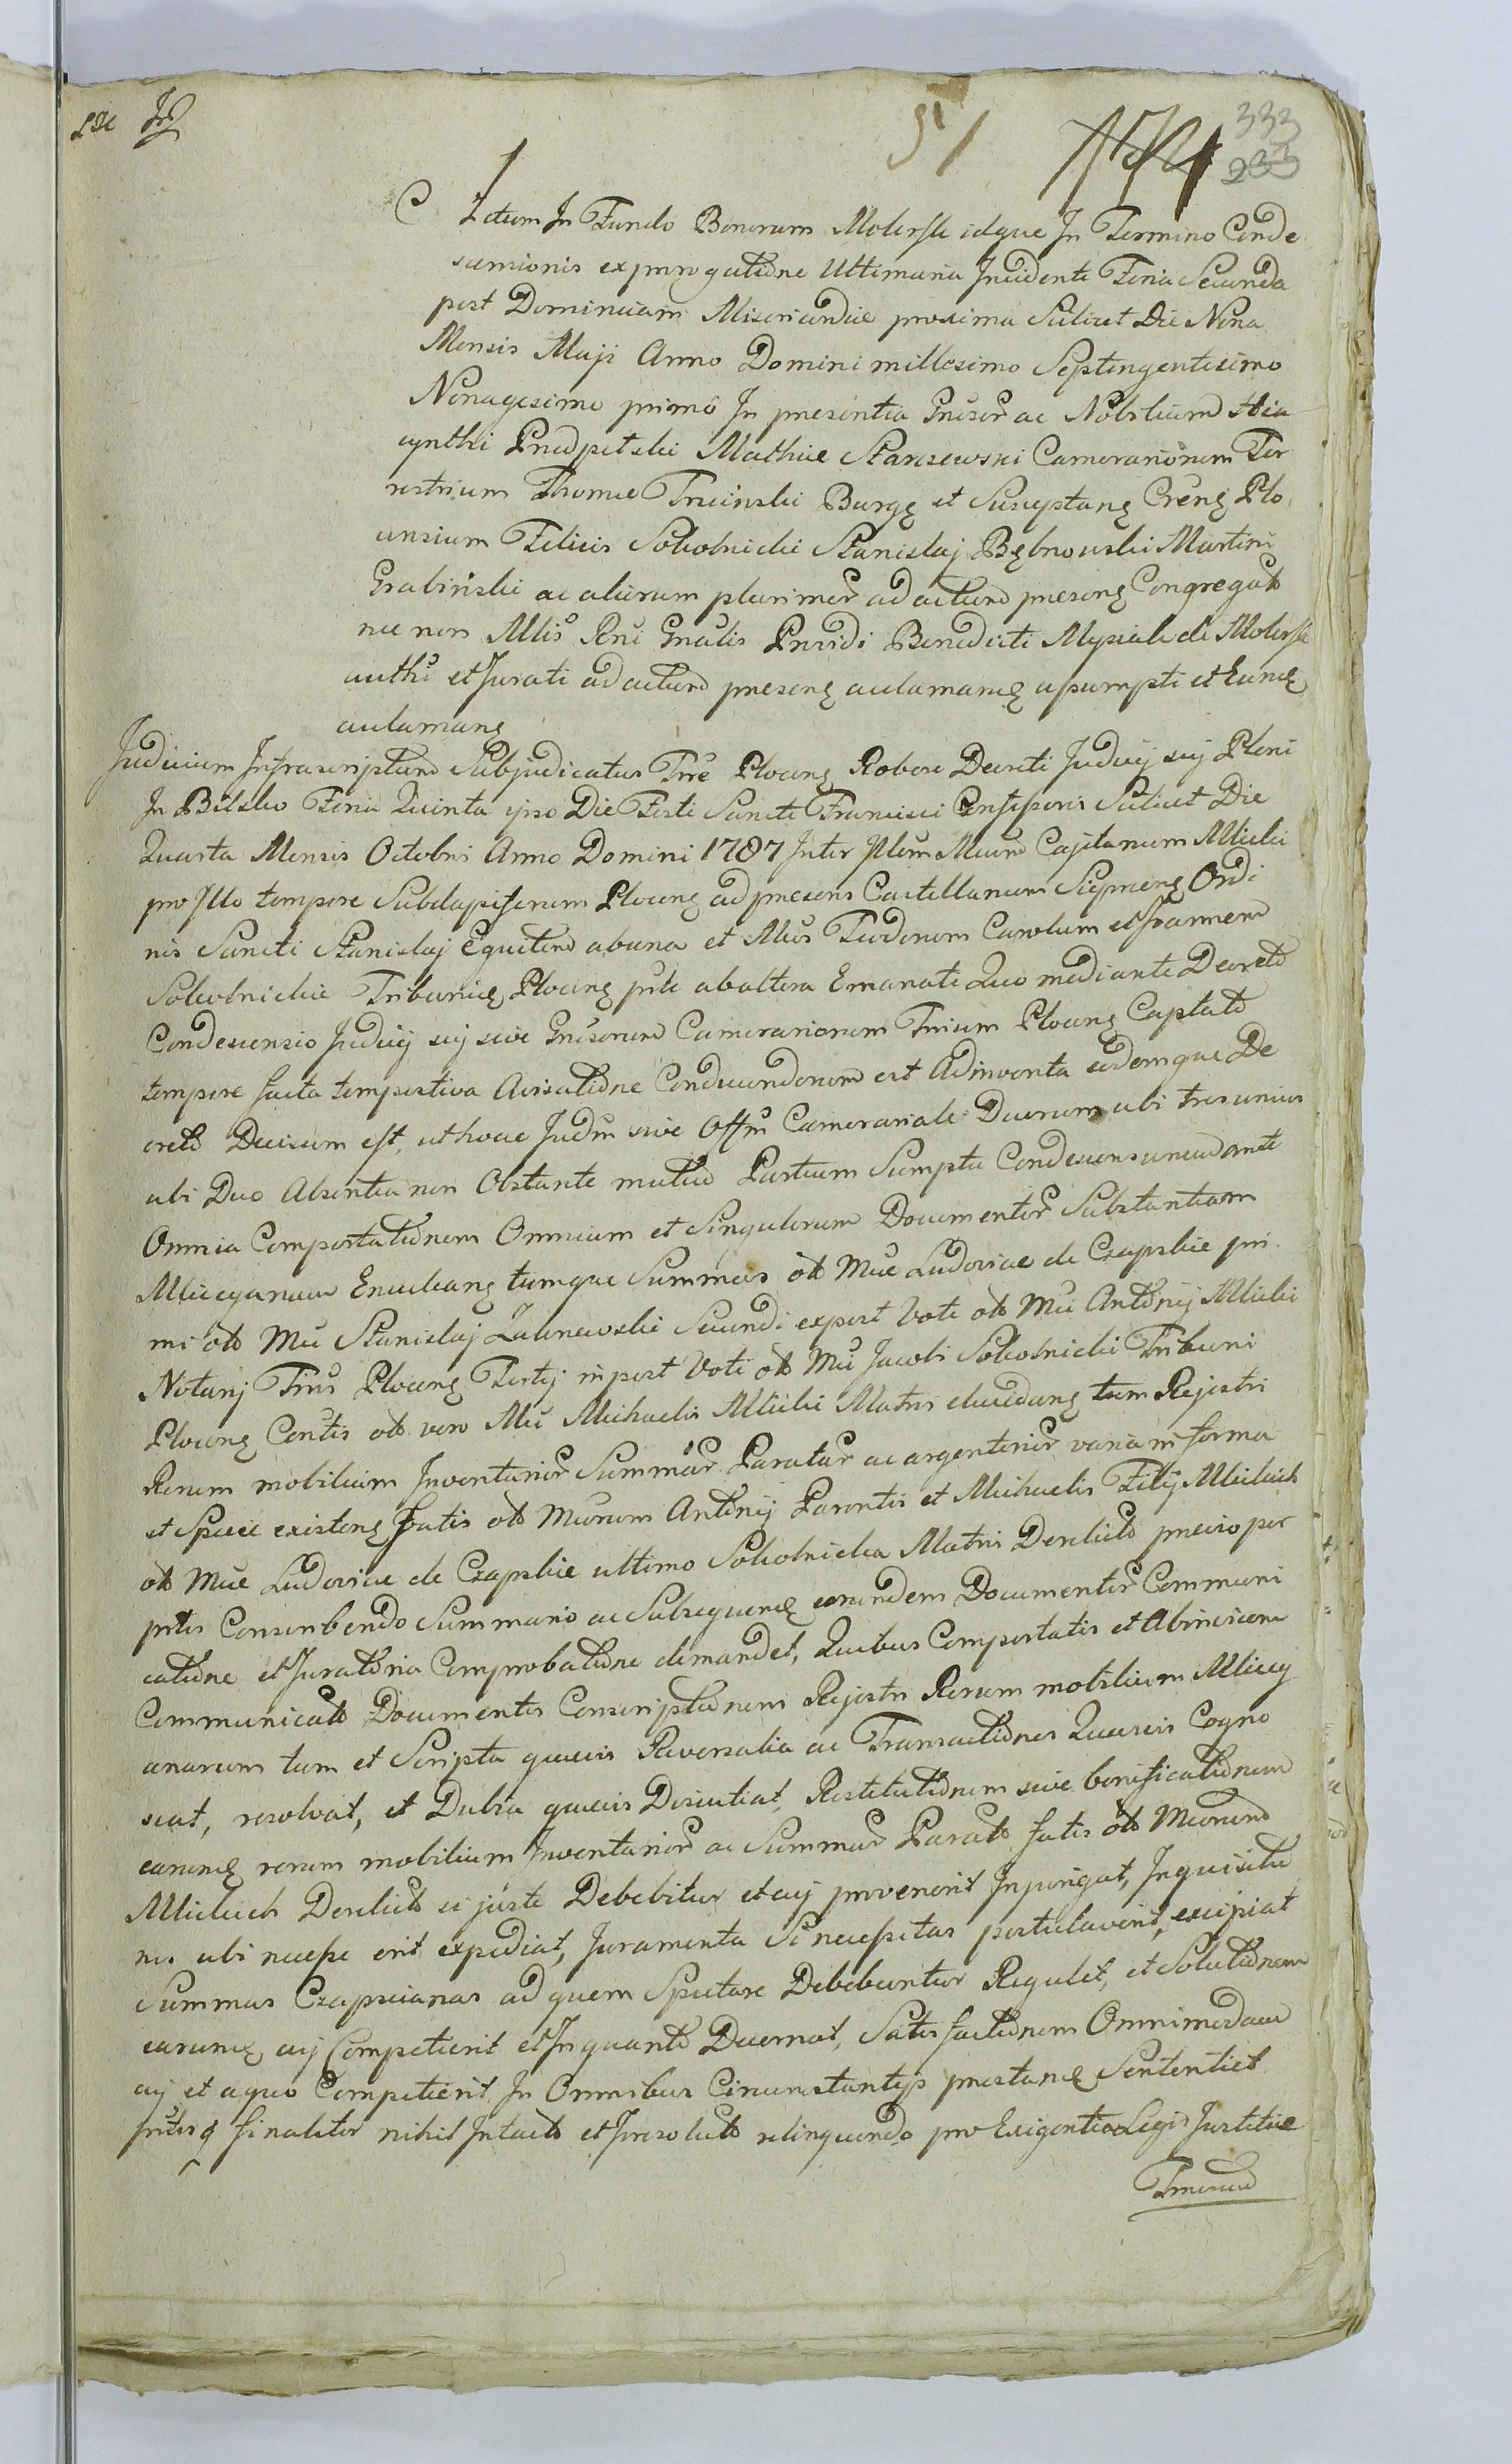 51 333
233
Actum In Fundo Bonorum Mokrsk idque In Termino Conde
scensionis exprorogatione Ultimaria Incidenti Feria Secunda
post Dominicam Misericordiae proxima Scilicet Die Nona
Mensis Maji Anno Domini millesimo Septingentesimo
Nonagesimo primo In presentia Gnrsor ac Nobilium Hia
cynthi Mathiae Starczewski Camerariorum Ter
restrium Thomae Trzcinski Burgs et Susceptans Crens Plo
censium Felicis Sokolnicki Stanislaj Bębnowski Martini
Grabiński ac aliorum plurimor ad actum presens Congregat
nec non Mlis Rni Gnalis Prvidi Benedicti Mysiak de Mokrsk
authi et Jurati ad actum presens aclamans assumpti et Eunds
aclamans
Judicium Infrascriptum Subjudicatus Trre Plocens Robore Decreti Judicij sui Pleni
In Bilsko Feria Quinta ipso Die Festi Sancti Francisci Confessoris Scilicet Die
Quarta Mensis Octobris Anno Domini 1787 Inter Illum Mcum Capitaneum Mlicki
pro Illo tempore Subdapiferum Plocens ad presens Castellanum Sieprcens Ordi
nis Sancti Stanislaj Equitem abuna et Mcos Teodorum Carolum et Joannem
Sokolnickie Tribunic Plocens ptte abaltera Emanati Quo mediante Decreto
Condescensio Judicij sui sive Gnrsorum Camerariorum Trium Plocens Captato
tempore facta tempestiva Avisatione Conducendorum est Adinventa eodemque De
creto Decisum est, ut hocce Judm sive Offm Camerariale Duorum ubi tres unius
ubi Duo Absentia non Obstante mutuo Partium Sumptu Condescensuum ante
Omnia Comportationem Omnium et Singulorum Documentor Substantiam
Mlicyanam Enucleans tumque Summas ott Mcae Ludovicae de Czapskie pri
mi ott Mci Stanislaj Zalinewski Secundi expost Voti ott Mci Antonij Mlicki
Notarij Trris Plocens Tertij inpost Voti ott Mci Jacobi Sokolnicki Tribuni
Plocens Contis ott vero Mci Michaelis Mlicki Matris elucidans tum Rejestri
Rerum mobilium Inventarior Summar Paratar ac argenterior varia in forma
et Specie existens fatis ott Mcorum Antonij Parentis et Michaelis Filij Mlickich
ott Mcae Ludovicae de Czapskie ultimo Sokolnicka Matri Derelict previo per
pttes Conscribendo Summario ac Subsequens eorundem Documentor Communi
catione et Juratoria Comprobatione demandet, Quibus Comportatis et Abinvicem
Communicat Documentis Conscriptionem Rejestri Rerum mobilium Mlicy
anarum tum et Scripta quaevis Reversalia ac Transactiones Quasvis Cogno
scat, resolvat, et Dubia quaevis Discutiat, Restitutionem sive bonificationem
earums rerum mobilium Inventarior ac Summar Parat fatis ott Mcorum
Mlickich Derelict si juste Debebitur et cuj provenerit Injungat, Inquisitio
nes ubi necesse erit expediat, Juramenta Si necessitas postulaverit, excipiat
Summas Czapscianas ad quem Spectare Debebuntur Regulet, et Solutionem
earums cuj Competierit et In quanto Decernat, Satisfactionem Omnimodam
cuj et aquo Competierit In Omnibus Circumstantijs prestans Sententiet
finaliter nihil Intact et Irresolut relinquendo pro Exigentia Legis Justitiae